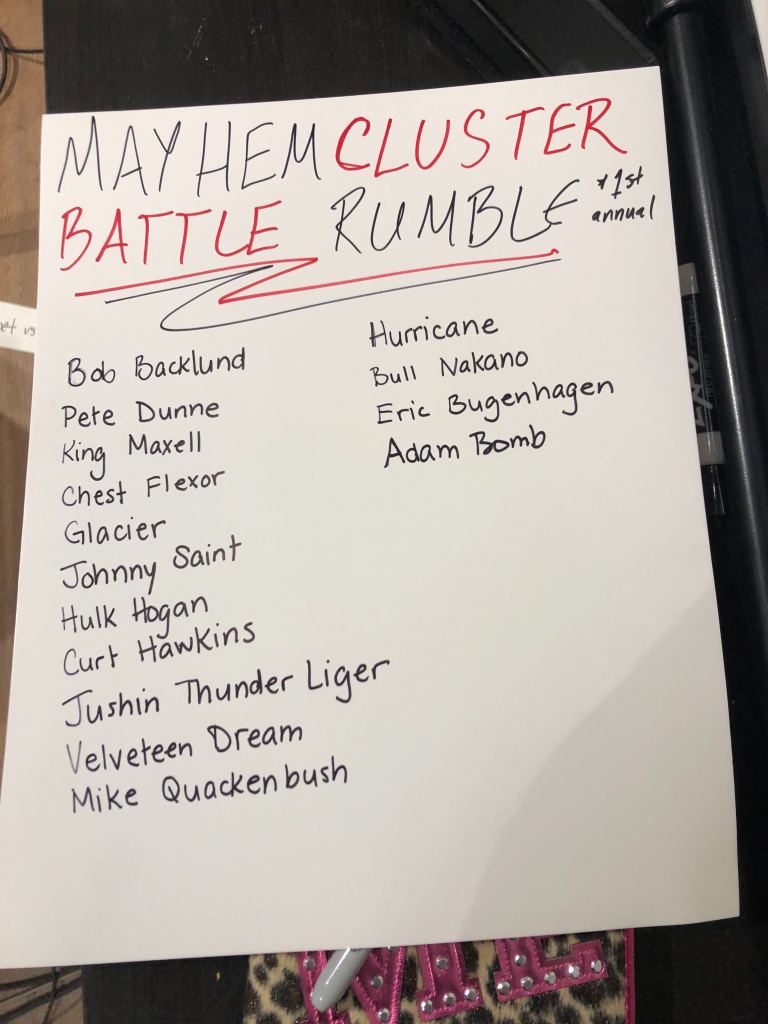 MAYHEM CLUSTER
BATTLE RUMBLE
*1st
annual
Bob Backlund
Pete Dunne
King Maxell
Chest Flexor
Glacier
Johnny Saint
Hulk Hogan
Curt Hawkins
Jushin Thunder Liger
Velveteen Dream
Mike Quackenbush
Hurricane
Bull Nakano
Eric Bugenhagen
Adam Bomb